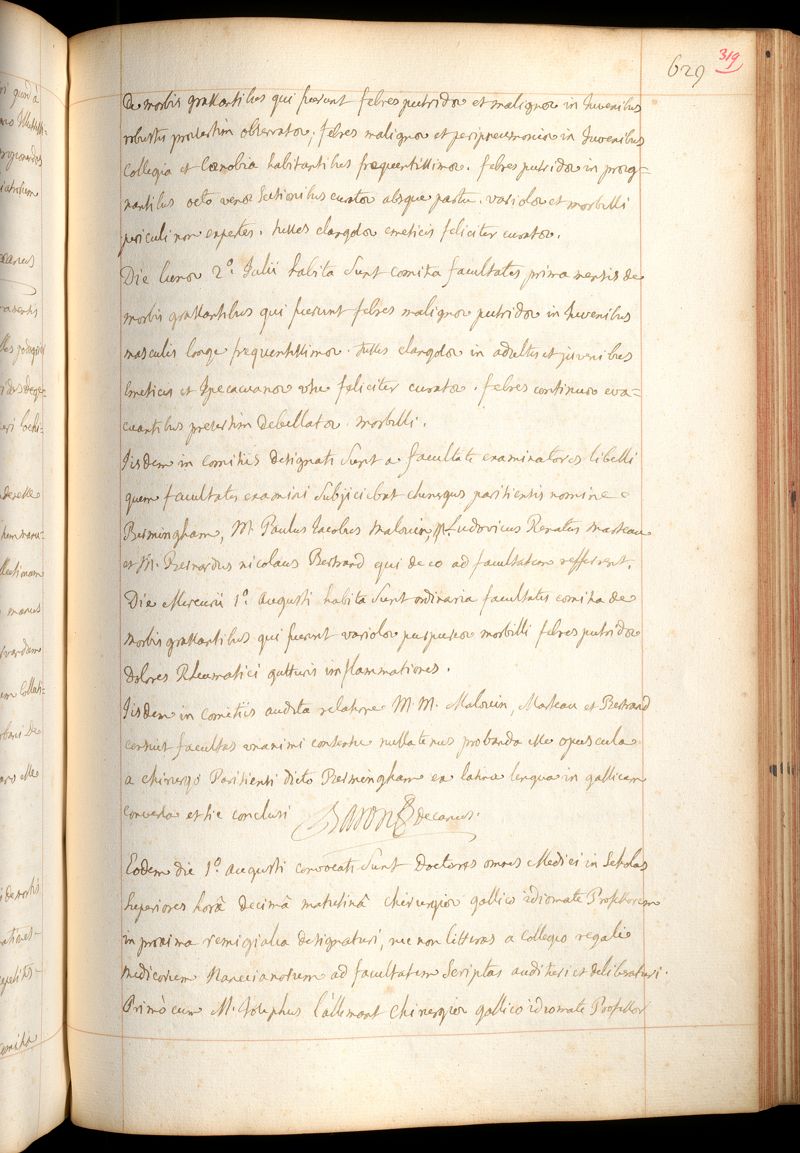 629 319
De morbis grassantibus qui fuerunt febres putridæ et malignæ in Juvenibus
robustis præsertim observatæ, febres malignæ et peripneumoniæ in Juvenibus
Collegia et Cœnobia habitantibus frequentissimæ. febres putridæ in præg=
nantibus octo venæ sectionibus curatæ absque partu. variolæ et morbilli
periculi non expertes. tusses clangosæ emeticis feliciter curatæ.
Die lunæ 2ª. Julii habita sunt comitia facultatis prima mensis de
morbis grassantibus qui fuerunt febres malignæ putridæ in Juvenibus
masculis longe frequentissimæ. tusses clangosæ in adultis et juvenibus
Emeticis et Ipecacuanæ usu feliciter curatæ. febres continuæ eva=
cuantibus presertim debellatæ. morbilli.
Iisdem in comitiis designati sunt a facultate examinatores libelli
quem facultatis examini subjiciebat chirurgus parisiensis nomine
Bermingham, M. Paulus Jacobus Malouin, M. Ludovicus Renatus Marteau
et M. Bernardus nicolaus Bertrand qui de eo ad facultatem refferrent.
Die Mercurii 1ª. Augusti habita sunt ordinaria facultatis comitia de
morbis grassantibus qui fuerunt variolæ purpureæ morbilli febres putridæ
dolores Rheumatici gutturis inflammationes.
Iisdem in comitiis audita relatione M. M. Malouin, Marteau et Bertrand
censuit facultas unanimi consensu nullatenus probanda esse opuscula
a chirurgo Parisiensi dicto Bermingham ex latina lingua in gallicam
conversa et sic conclusi Baron decanus.
Eodem die 1ª. Augusti convocati sunt Doctores omnes Medici in Scholas
superiores horâ decimâ matutinâ chirurgiæ gallico idiomate Professorem
in proxima remigialia designaturi, nec non litteras a Collegio regali
medicorum Nanceianorum ad facultatem scriptas audituri et deliberaturi.
Primò cum M. Josephus Lallemant chirurgiæ gallico idiomate Professor